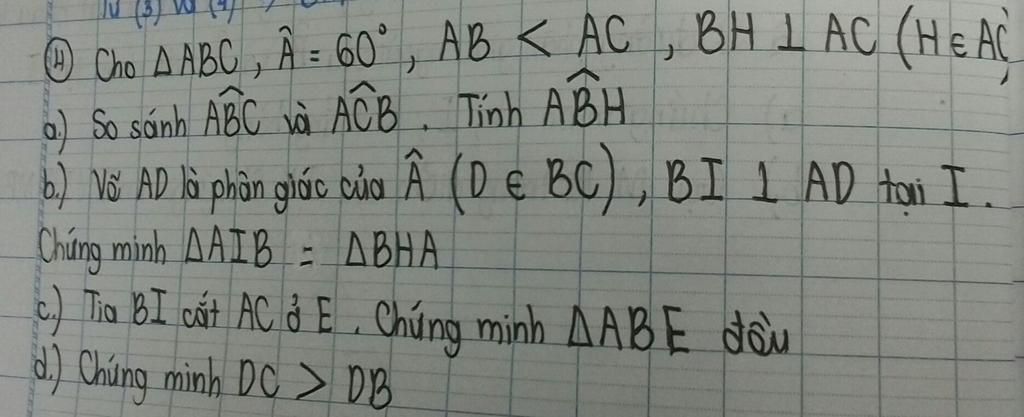 ④ Cho ΔABC, Â = 60°, AB < AC, BH ⊥ AC (H ∈ AC)
a.) So sánh ABC và ACB. Tính ABH
b.) Vẽ AD là phân giác của Â (D ∈ BC), BI ⊥ AD tại I.
Chứng minh ΔAIB = ΔBHA
c.) Tia BI cắt AC ở E. Chứng minh ΔABE đều
d.) Chứng minh DC > DB